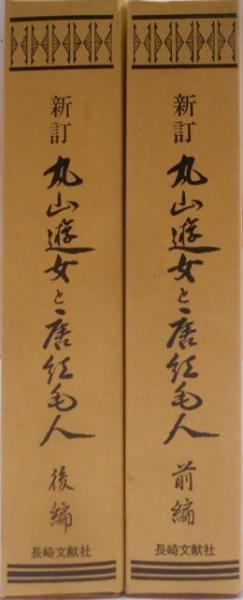 新訂 丸山遊女と唐紅毛人 前編
長崎文献社
新訂 丸山遊女と唐紅毛人 後編
長崎文献社